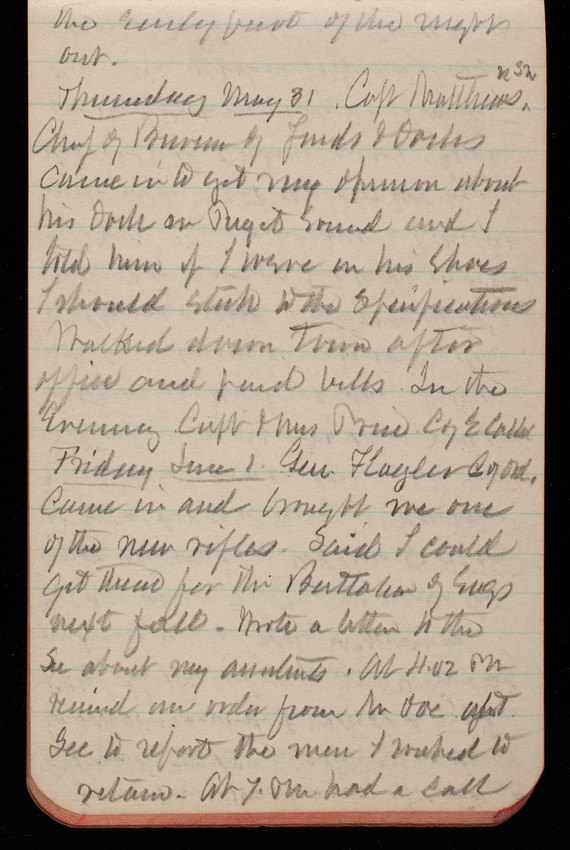 the early part of the night
out.
Thursday May 31. Capt Matthews, USN
Chf of Bureau of Yards & Docks
came in to get my opinion about
his Dock on Puget Sound and I
told him if I were in his Shoes
I should stick to the Specifications
Walked down Town after
office and paid bills. In the
Evening Capt & Mrs Price C of E called
Friday June 1. Gen Flagler C of Ord.
came in and brought me one
of the new rifles. Said I could
get these for the Battalion of Engs
next fall. Wrote a letter to the
Sec about my assistants. At 4.02 PM
recvd an order from Mr Doe asst.
Sec to report the men I wished to
retain. At 7. PM had a call